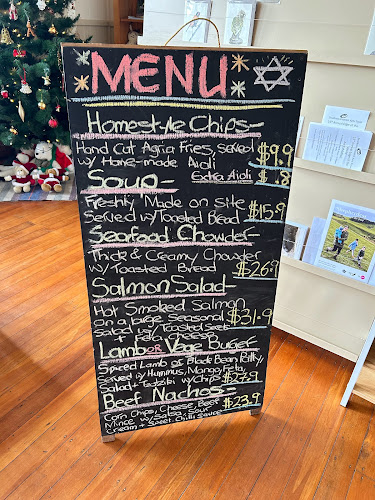 MENU
Homestyle Chips-
Hand Cut Agria Fries, Served
w/ Home-made Aioli $9.9
Extra Aioli $1.8
Soup-
Freshly Made on Site
Served w/ Toasted Bread $15.9
Seafood Chowder-
Thick & Creamy Chowder
w/ Toasted Bread $26.9
Salmon Salad-
Hot Smoked Salmon
on a large Seasonal
Salad w/ Toasted Seeds $31.9
+ Feta Cheese
Lamb or Vege Burger
Spiced Lamb or Black Bean Patty,
Served w/ Hummus, Mango, Feta,
Salad + Tzatziki w/ Chips $27.9
Beef Nachos- $23.9
Corn Chips, Cheese, Beef
Mince w/ Salsa, Sour
Cream + Sweet Chilli Sauce